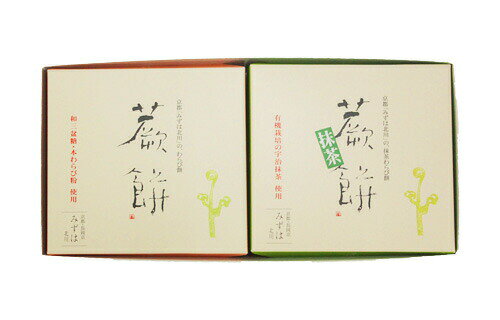 京都「みずは北川」の、わらび餅
蕨餅
和三盆糖・本わらび粉 使用
京都・長岡京
みずは
北川
京都「みずは北川」の、抹茶わらび餅
蕨餅
抹茶
有機栽培の宇治抹茶 使用
京都・長岡京
みずは
北川